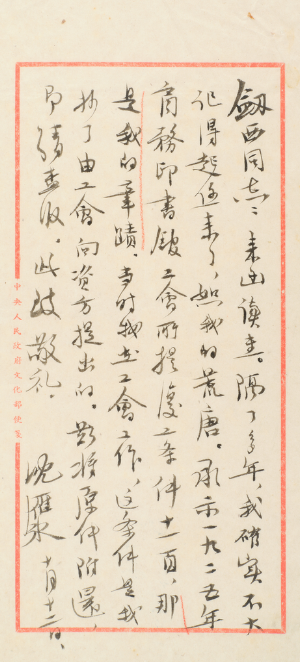 劔西同志：来函读悉。隔了多年，我确实不大
记得起这来了，如我的荒唐。承示一九二五年
商務印書館工會所提復工条件十一頁，那
是我的筆蹟。当时我在工會工作，这条件是我
抄了由工會向資方提出的。兹将原件附還，
即請查收。此致敬礼。
沈雁冰 十月十二日。
中央人民政府文化部便箋